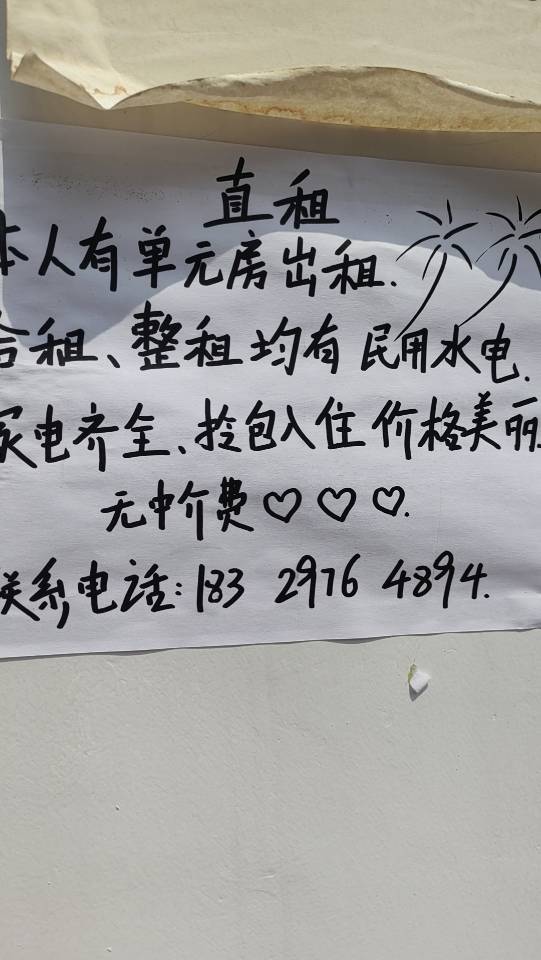 直租
本人有单元房出租.
合租、整租均有民用水电.
家电齐全、拎包入住价格美丽
无中介费♡♡♡.
联系电话:183 2976 4894.